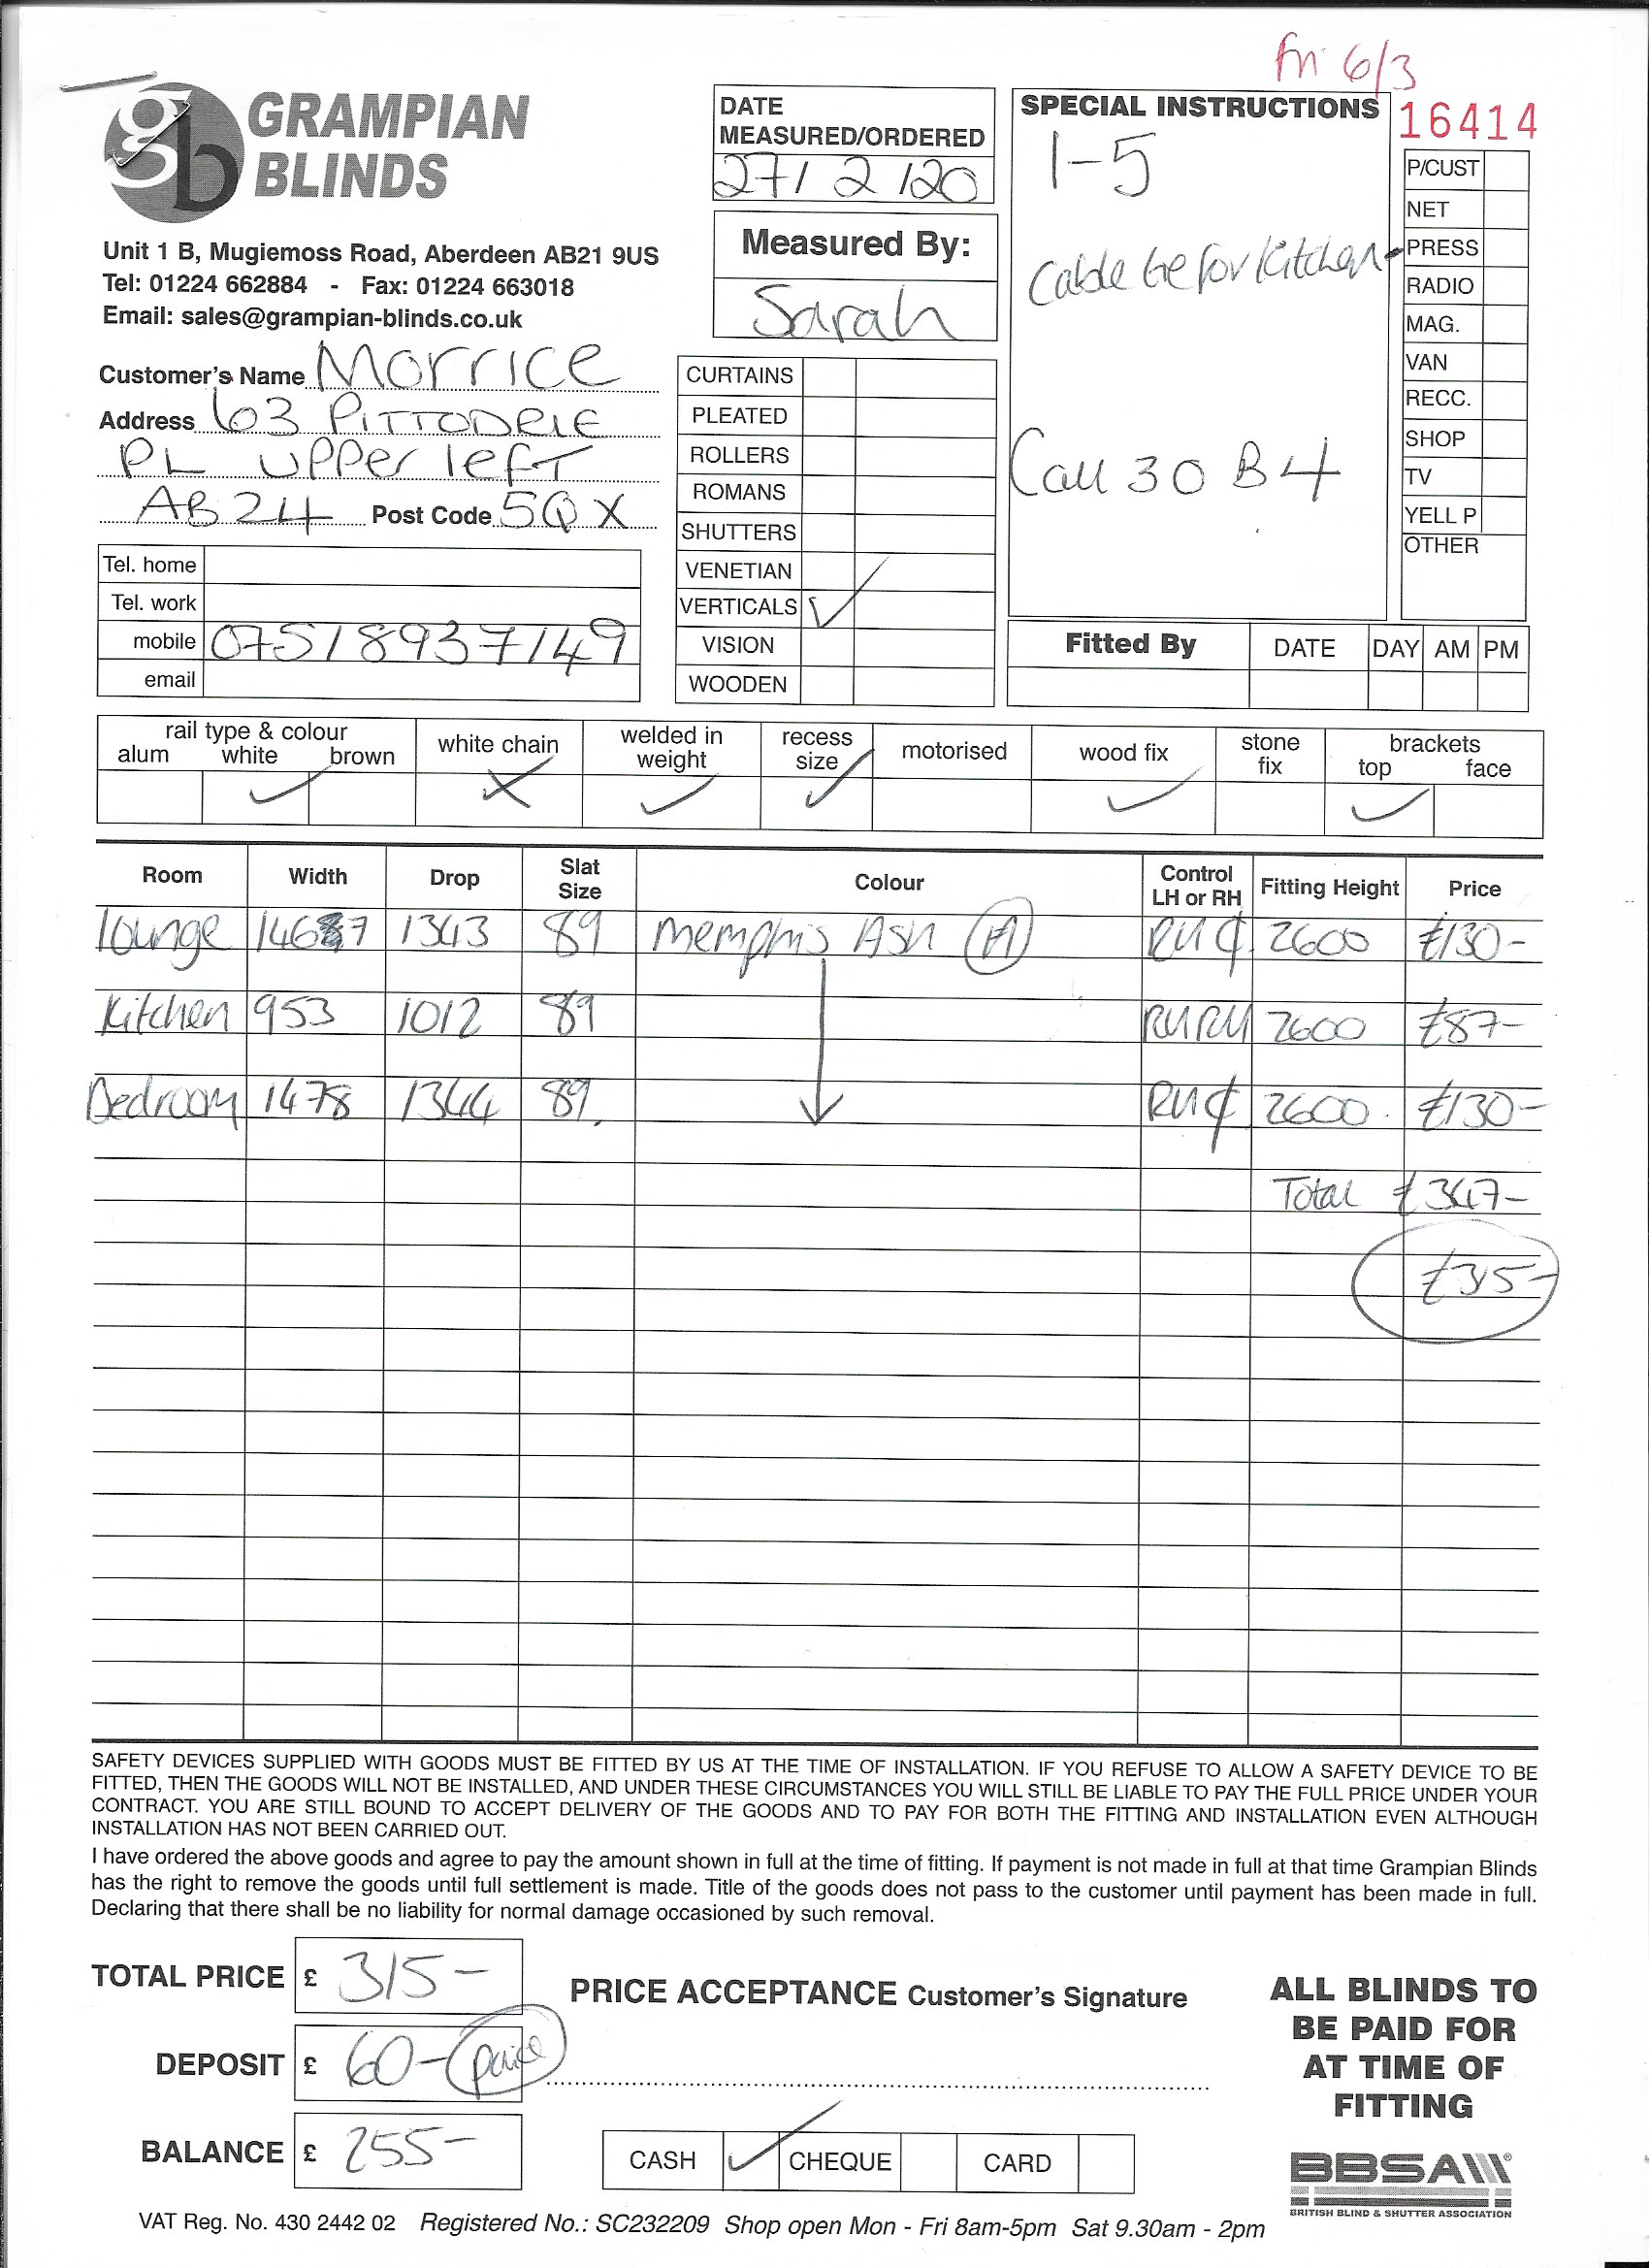 Fri 6/3
16414
gb GRAMPIAN
BLINDS
Unit 1 B, Mugiemoss Road, Aberdeen AB21 9US
Tel: 01224 662884 - Fax: 01224 663018
Email: sales@grampian-blinds.co.uk
Customer's Name Morrice
Address 63 PITTODRIE
PL upper left
AB24 Post Code 5QX
Tel. home
Tel. work
mobile 07518937149
email
DATE
MEASURED/ORDERED
27/2/20
Measured By:
Sarah
CURTAINS
PLEATED
ROLLERS
ROMANS
SHUTTERS
VENETIAN
VERTICALS ✓
VISION
WOODEN
SPECIAL INSTRUCTIONS
1-5
Cable tie for kitchen-
Call 30 B4
P/CUST
NET
PRESS
RADIO
MAG.
VAN
RECC.
SHOP
TV
YELL P
OTHER
Fitted By DATE DAY AM PM
rail type & colour
alum white brown
white chain
welded in
weight
recess
size
motorised
wood fix
stone
fix
brackets
top face
✓ X ✓ ✓ ✓ ✓
Room Width Drop Slat Size Colour Control LH or RH Fitting Height Price
lounge 1343 89 Memphis Ash (A) RH ₵ 2600 £130-
Kitchen 953 1012 89 RH RH 2600 £87-
Bedroom 1478 1344 89. RH ₵ 2600 £130-
Total £347-
£315-
SAFETY DEVICES SUPPLIED WITH GOODS MUST BE FITTED BY US AT THE TIME OF INSTALLATION. IF YOU REFUSE TO ALLOW A SAFETY DEVICE TO BE
FITTED, THEN THE GOODS WILL NOT BE INSTALLED, AND UNDER THESE CIRCUMSTANCES YOU WILL STILL BE LIABLE TO PAY THE FULL PRICE UNDER YOUR
CONTRACT. YOU ARE STILL BOUND TO ACCEPT DELIVERY OF THE GOODS AND TO PAY FOR BOTH THE FITTING AND INSTALLATION EVEN ALTHOUGH
INSTALLATION HAS NOT BEEN CARRIED OUT.
I have ordered the above goods and agree to pay the amount shown in full at the time of fitting. If payment is not made in full at that time Grampian Blinds
has the right to remove the goods until full settlement is made. Title of the goods does not pass to the customer until payment has been made in full.
Declaring that there shall be no liability for normal damage occasioned by such removal.
TOTAL PRICE £ 315-
DEPOSIT £ 60- paid
BALANCE £ 255-
PRICE ACCEPTANCE Customer's Signature
CASH ✓ CHEQUE CARD
ALL BLINDS TO
BE PAID FOR
AT TIME OF
FITTING
BBSA
BRITISH BLIND & SHUTTER ASSOCIATION
VAT Reg. No. 430 2442 02 Registered No.: SC232209 Shop open Mon - Fri 8am-5pm Sat 9.30am - 2pm